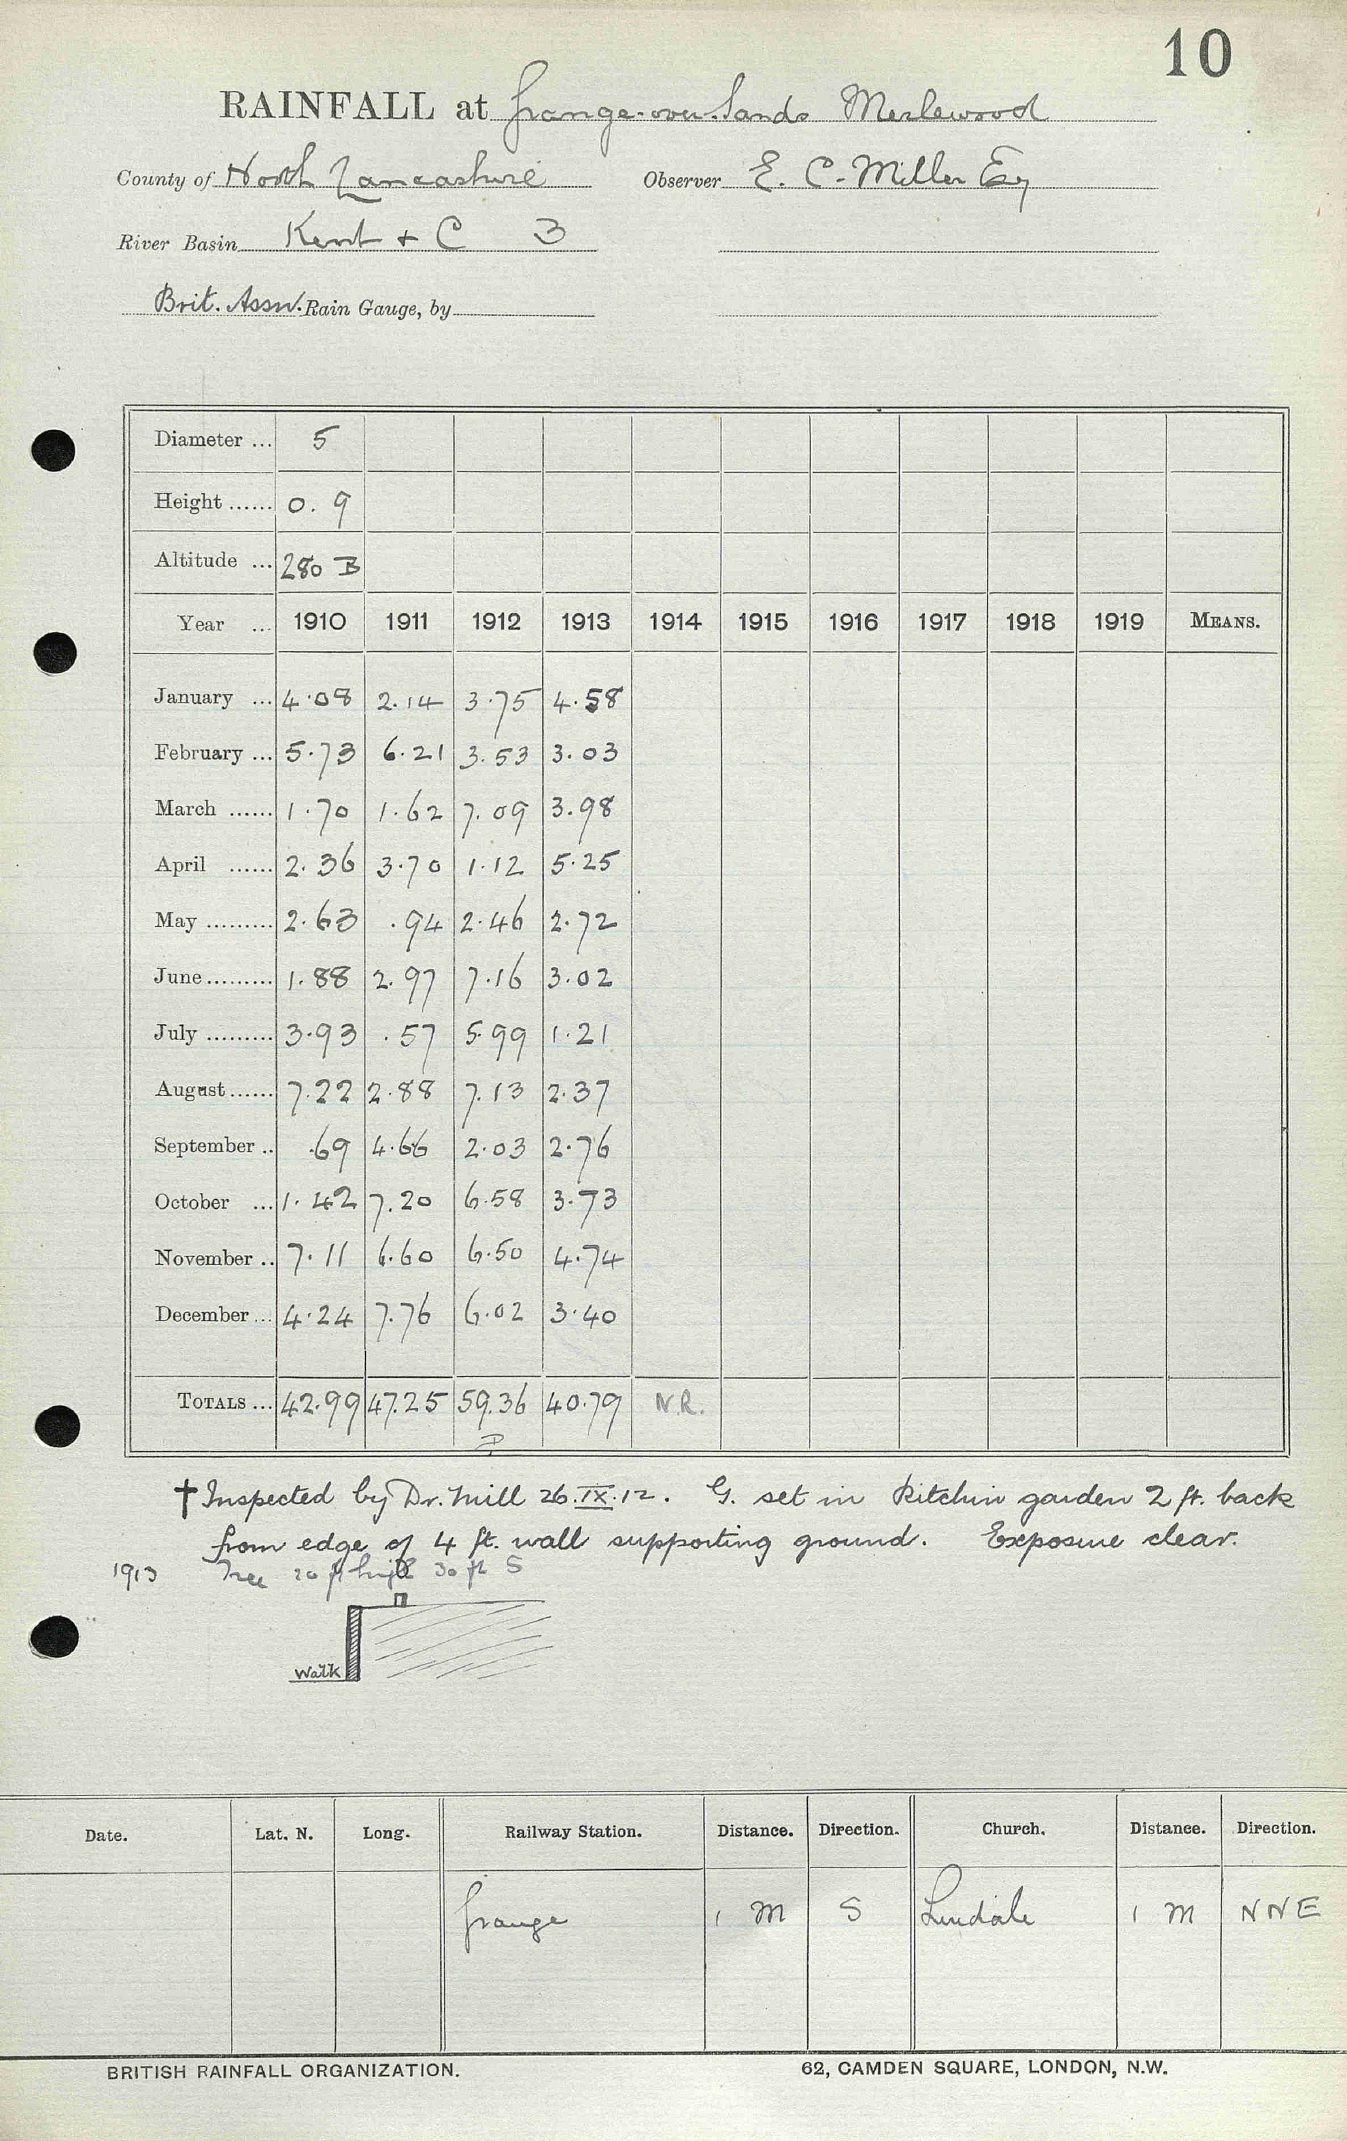 10
RAINFALL at Grange-over-Sands Merlewood
County of North Lancashire Observer E. C. Miller Esq
River Basin Kent + C 3
Brit. Assn. Rain Gauge, by
Diameter ... 5
Height ...... 0. 9
Altitude ... 280 B
Year ... 1910 1911 1912 1913 1914 1915 1916 1917 1918 1919 MEANS.
January ... 4.08 2.14 3.75 4.58
February ... 5.73 6.21 3.53 3.03
March ...... 1.70 1.62 7.09 3.98
April ...... 2.36 3.70 1.12 5.25
May ......... 2.63 .94 2.46 2.72
June ......... 1.88 2.97 7.16 3.02
July ......... 3.93 .57 5.99 1.21
August ...... 7.22 2.88 7.13 2.37
September .. .69 4.66 2.03 2.76
October ... 1.42 7.20 6.58 3.73
November .. 7.11 6.60 6.50 4.74
December ... 4.24 7.76 6.02 3.40
TOTALS ... 42.99 47.25 59.36 40.79 N.R.
† Inspected by Dr. Mill 26.IX.12. G. set in kitchin garden 2 ft. back
from edge of 4 ft. wall supporting ground. Exposure clear.
1913 Tree 20 ft high 30 ft S
Walk
Date. Lat. N. Long. Railway Station. Distance. Direction. Church. Distance. Direction.
Grange 1 M S Lindale 1 M NNE
BRITISH RAINFALL ORGANIZATION. 62, CAMDEN SQUARE, LONDON, N.W.